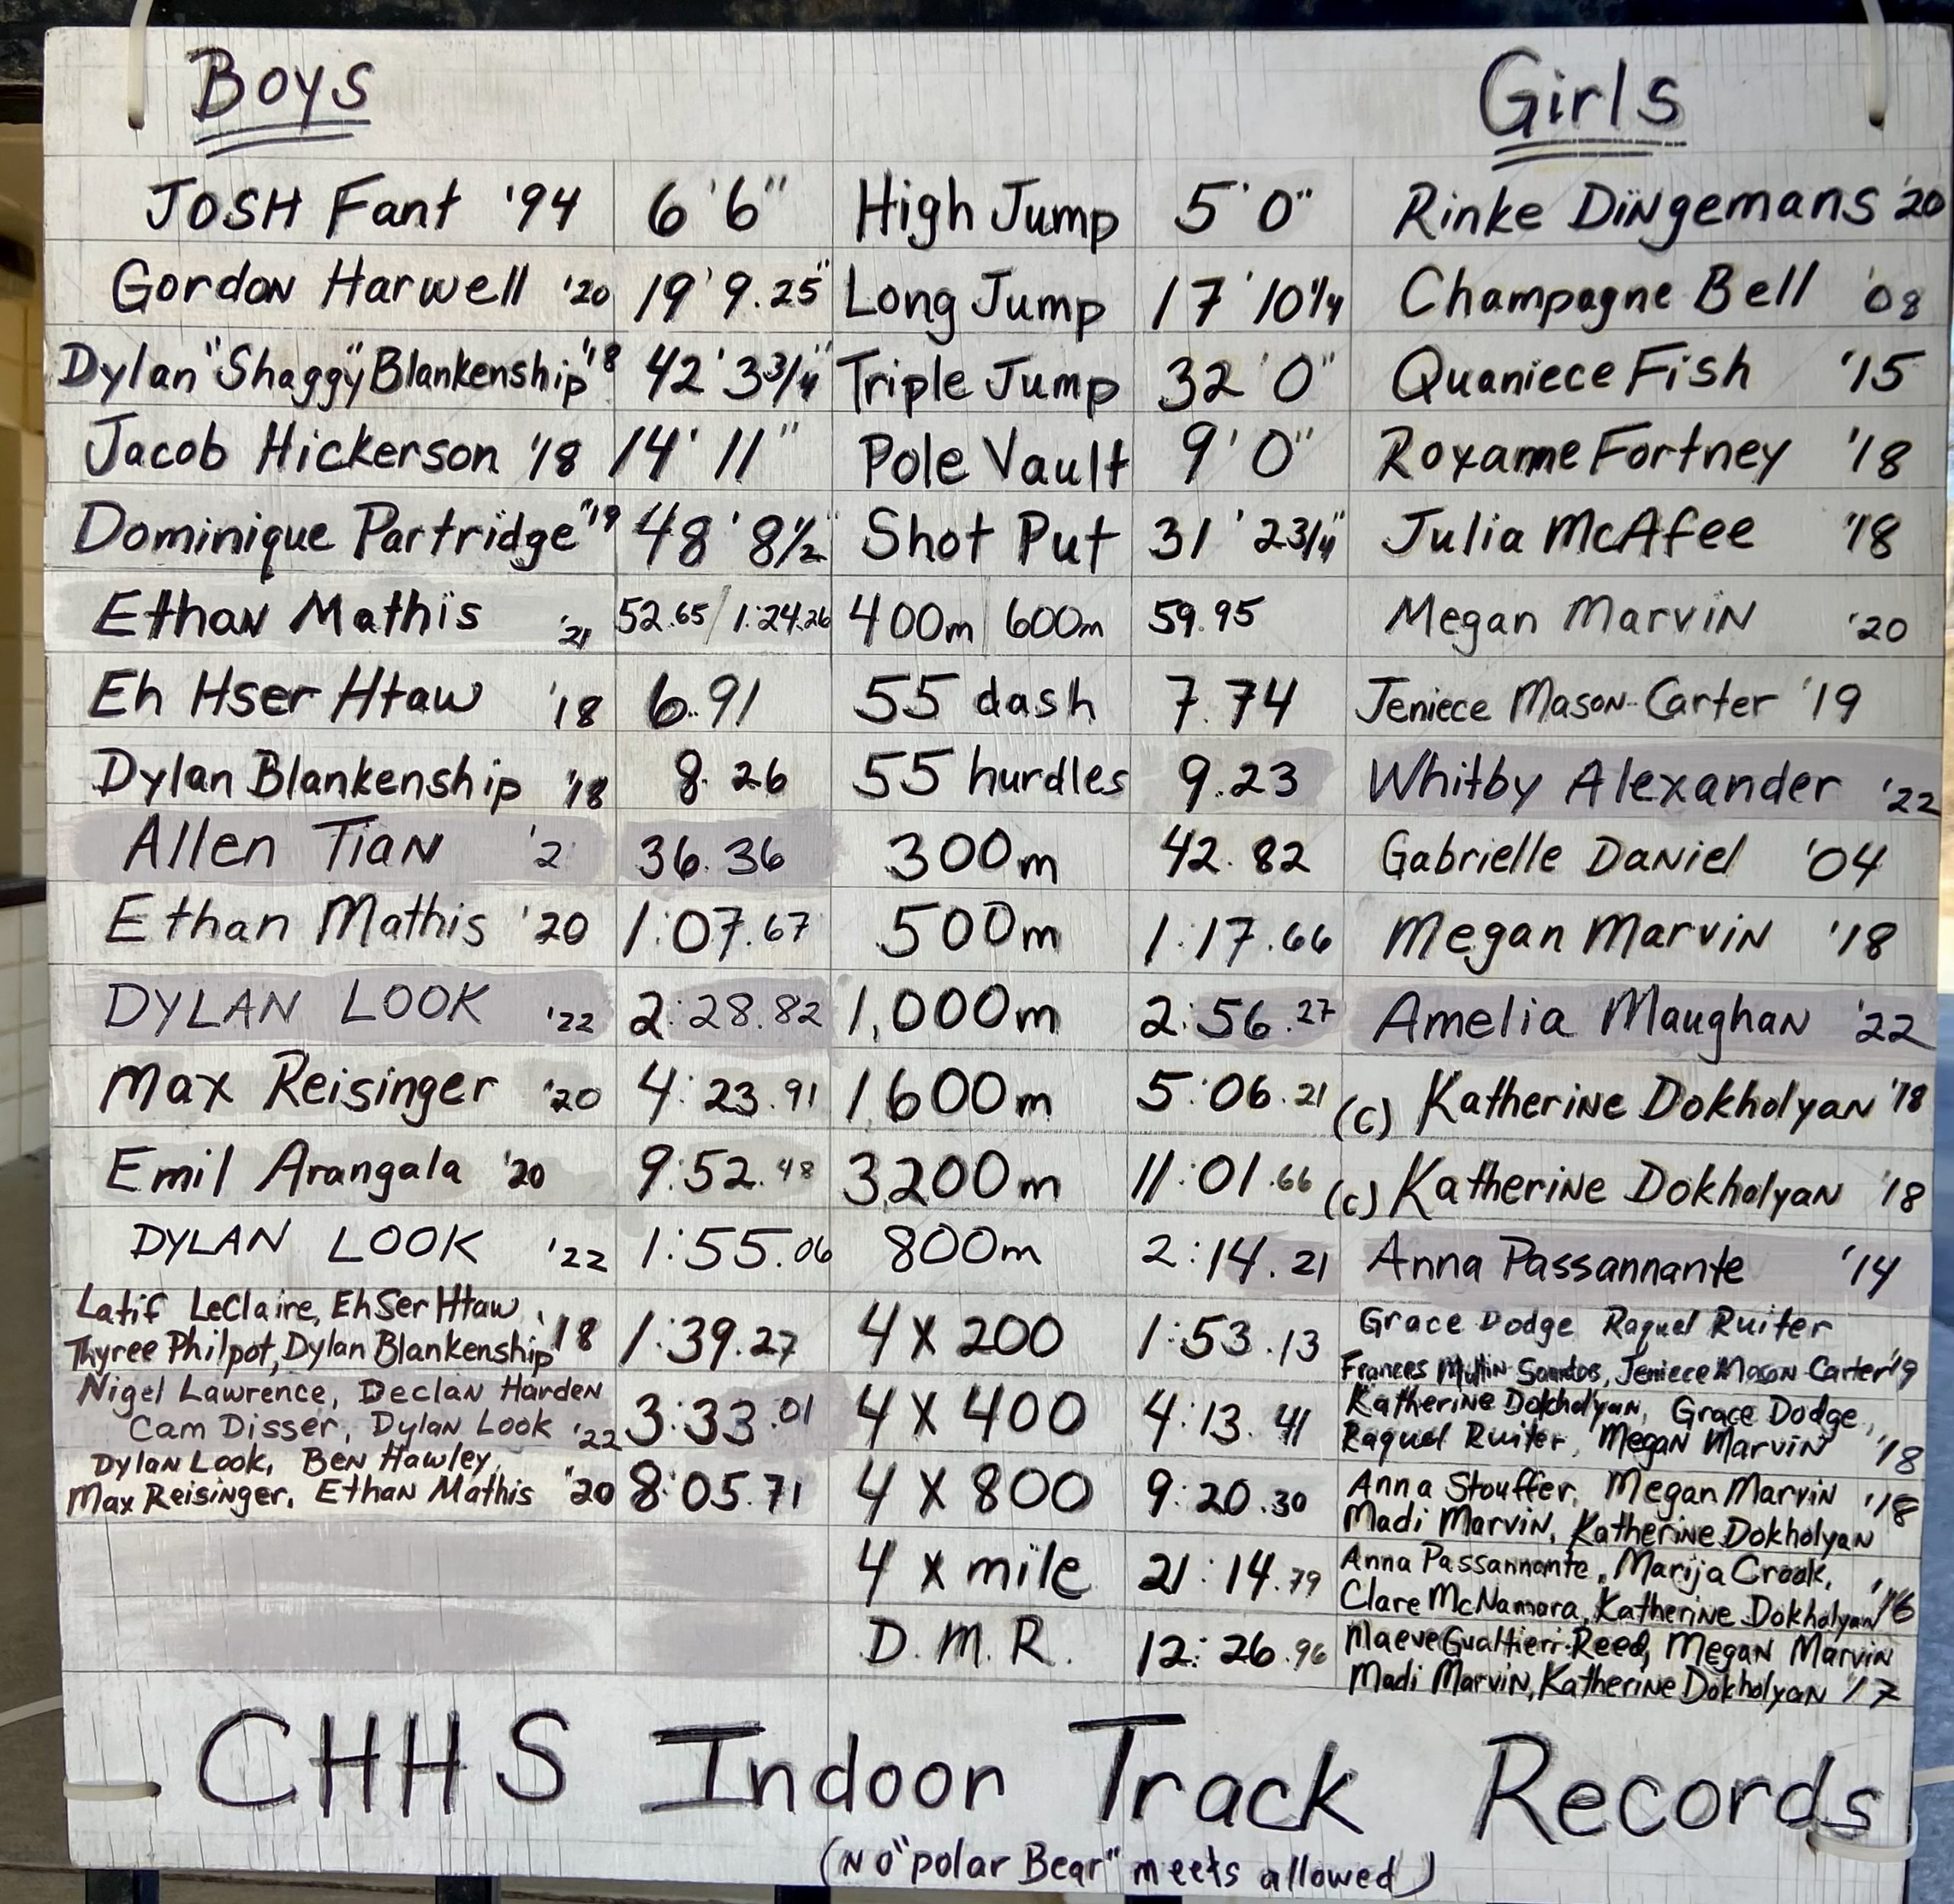 Boys Girls
JOSH Fant '94 6'6" High Jump 5'0" Rinke Dingemans '20
Gordon Harwell '20 19'9.25" Long Jump 17'10¼ Champagne Bell '08
Dylan "Shaggy" Blankenship '18 42'3¾" Triple Jump 32'0" Quaniece Fish '15
Jacob Hickerson '18 14'11" Pole Vault 9'0" Roxanne Fortney '18
Dominique Partridge '19 48'8½" Shot Put 31'2¾" Julia McAfee '18
Ethan Mathis '21 52.65/1:24.26 400m/600m 59.95 Megan Marvin '20
Eh Hser Htaw '18 6.91 55 dash 7.74 Jeniece Mason-Carter '19
Dylan Blankenship '18 8.26 55 hurdles 9.23 Whitby Alexander '22
Allen Tian '2 36.36 300m 42.82 Gabrielle Daniel '04
Ethan Mathis '20 1:07.67 500m 1:17.66 Megan Marvin '18
DYLAN LOOK '22 2:28.82 1,000m 2:56.27 Amelia Maughan '22
Max Reisinger '20 4:23.91 1,600m 5:06.21 (c) Katherine Dokholyan '18
Emil Arangala '20 9:52.48 3,200m 11:01.66 (c) Katherine Dokholyan '18
DYLAN LOOK '22 1:55.06 800m 2:14.21 Anna Passannante '14
Latif LeClaire, EhSer Htaw,
Thyree Philpot, Dylan Blankenship '18 1:39.27 4 x 200 1:53.13 Grace Dodge Raquel Ruiter
Frances Mullin Santos, Jeniece Mason-Carter '19
Nigel Lawrence, Declan Harden
Cam Disser, Dylan Look '22 3:33.01 4 x 400 4:13.41 Katherine Dokholyan, Grace Dodge,
Raquel Ruiter, Megan Marvin '18
Dylan Look, Ben Hawley,
Max Reisinger, Ethan Mathis "20 8:05.71 4 x 800 9:20.30 Anna Stouffer, Megan Marvin '18
Madi Marvin, Katherine Dokholyan
4 x mile 21:14.79 Anna Passannante, Marija Crook,
Clare McNamara, Katherine Dokholyan '16
D.M.R. 12:26.96 Maeve Gualtieri-Reed, Megan Marvin
Madi Marvin, Katherine Dokholyan '17
CHHS Indoor Track Records
(No "polar Bear" meets allowed)